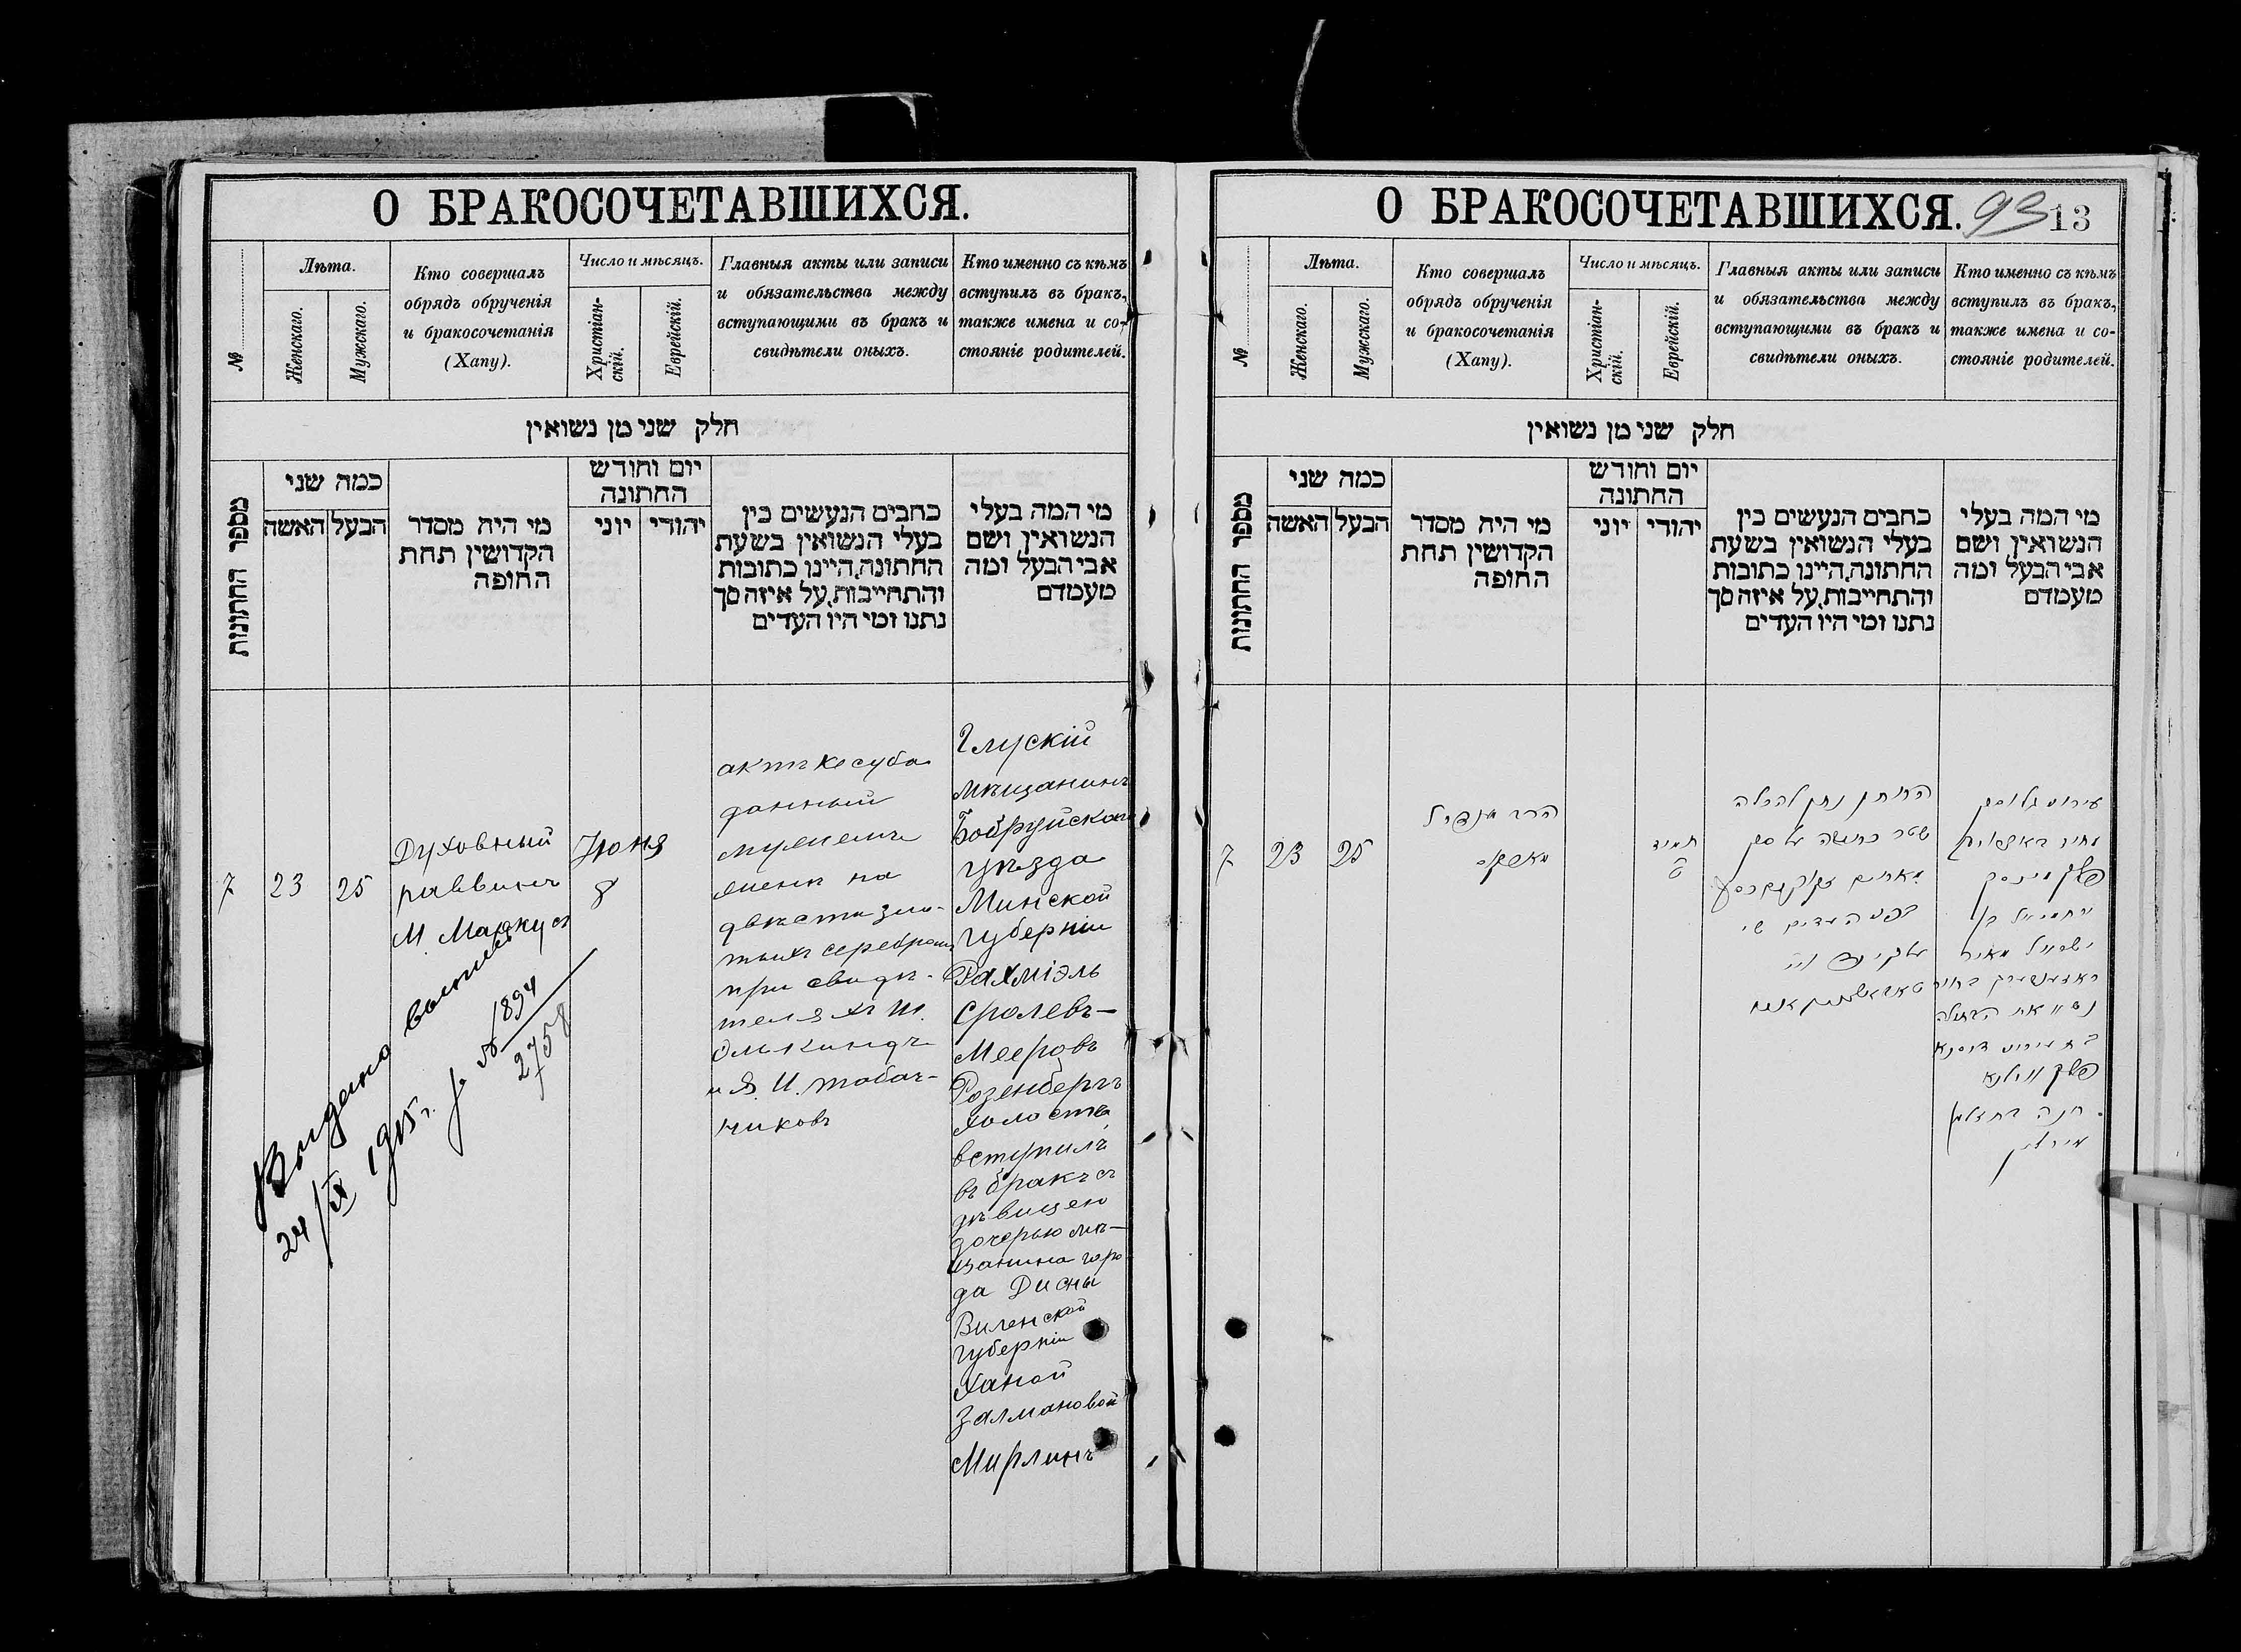 О БРАКОСОЧЕТАВШИХСЯ.
№
Лѣта.
Женскаго.
Мужскаго.
Кто совершалъ
обрядъ обрученія
и бракосочетанія
(Хапу).
Число и мѣсяцъ.
Христіан-
скій.
Еврейскій.
Главныя акты или записи
и обязательства между
вступающими въ бракъ и
свидѣтели оныхъ.
Кто именно съ кѣмъ
вступилъ въ бракъ,
также имена и со-
стояніе родителей.
חלק שני מן נשואין
מספר החתונות
כמה שני
האשה
הבעל
מי היה מסדר
הקדושין תחת
החופה
יום וחודש
החתונה
יוני
יהודי
כתבים הנעשים בין
בעלי הנשואין בשעת
החתונה, היינו כתובות
והתחייבות, על איזה סך
נתנו ומי היו העדים
מי המה בעלי
הנשואין ושם
אבי הבעל ומה
מעמדם
7
23
25
Духовный
раввинъ
М. Маркусъ
Іюня
8
актъ кесуба
данный
мужемъ
женѣ на
двѣсти зло-
тыхъ серебромъ
при свидѣ-
теляхъ Ш.
Элькиндъ
и Я. И. Табач-
никовъ
Глускій
мѣщанинъ
Бобруйскаго
уѣзда
Минской
губерніи
Рахміэль
Сролевъ-
Мееровъ
Розенбергъ
холостъ
вступилъ
въ бракъ съ
дѣвицею
дочерью мѣ-
щанина горо-
да Дисны
Виленской
губерніи
Ханой
Залмановой
Мирлинъ
Выдана выпись
24/IX 1915 г. за № 1894
2758
О БРАКОСОЧЕТАВШИХСЯ.
93
13
№
Лѣта.
Женскаго.
Мужскаго.
Кто совершалъ
обрядъ обрученія
и бракосочетанія
(Хапу).
Число и мѣсяцъ.
Христіан-
скій.
Еврейскій.
Главныя акты или записи
и обязательства между
вступающими въ бракъ и
свидѣтели оныхъ.
Кто именно съ кѣмъ
вступилъ въ бракъ,
также имена и со-
стояніе родителей.
חלק שני מן נשואין
מספר החתונות
כמה שני
האשה
הבעל
מי היה מסדר
הקדושין תחת
החופה
יום וחודש
החתונה
יוני
יהודי
כתבים הנעשים בין
בעלי הנשואין בשעת
החתונה, היינו כתובות
והתחייבות, על איזה סך
נתנו ומי היו העדים
מי המה בעלי
הנשואין ושם
אבי הבעל ומה
מעמדם
7
23
25
הרב
מארקוס
תמוז
החתן נתן להכלה
שטר כתובה על סך
בפני העדים
עירוני גלוסק
פלך מינסק
ירחמיאל בן
ישראל מאיר
ראזענבערג בחור
נשוי את הבתולה
בת עירוני דיסנא
פלך ווילנא
חנה בת זלמן
מירלין